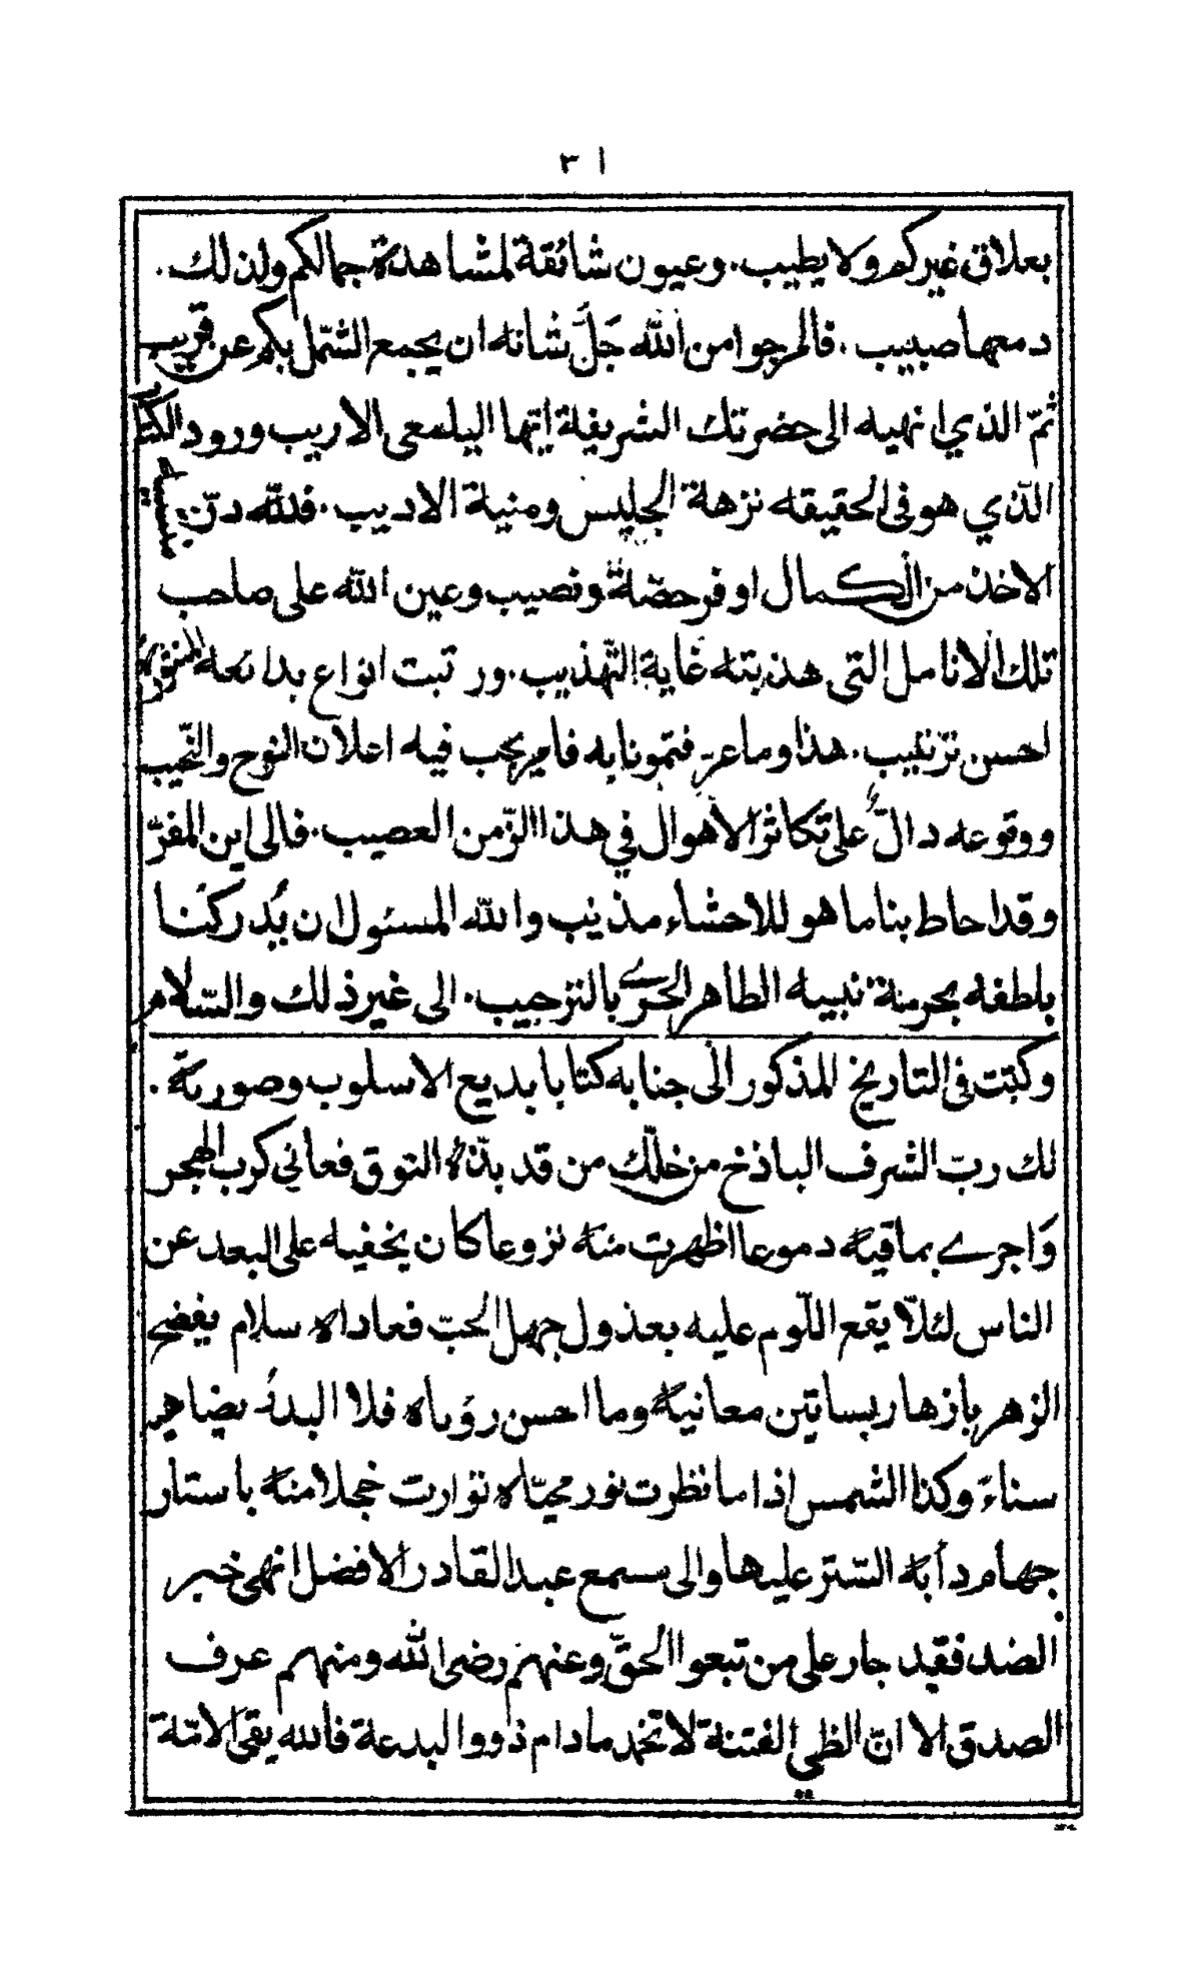 ٣١
بعلاق غيركم ولا يطيب. وعيون شائقة لمشاهدة جمالكم ولذلك.
دمعها صبيب. فالمرجوا من الله جَلَّ شانه ان يجمع الشمل بكم عن قريب
ثمّ الذي انهيه الى حضرتك الشريفة ايّها اليلمعى الاريب ورود الكتاب
الّذي هو فى الحقيقه نزهة الجليس ومنية الاديب. فلله درّ
الاخذ من الكمال اوفر حصّة ونصيب وعين الله على صاحب
تلك الانامل التى هذبته غاية التّهذيب. ورتبت انواع بدائعه
احسن ترتيب. هذا وما عرفتمونا به فامر يجب فيه اعلان النوح والنّحيب
ووقوعه دالّ على تكاثر الأهوال في هذا الزّمن العصيب. فالى اين المفرّ
وقد احاط بنا ما هو للاحشاء مذيب والله المسئول ان يُدركنا
بلطفه بحرمة نبيه الطاهر الحرے بالترجيب. الى غير ذلك والسّلام
وكتبت فى التاريخ المذكور الى جنابه كتابا بديع الاسلوب وصورته.
لك ربّ الشرف الباذخ من خلّك من قد بذّه التوق فعاني كرب الهجر
وَاجرے بماقيه دموعا اظهرت منه نزوعا كان يخفيه على البعد عن
الناس لئلّا يقع اللّوم عليه بعذول جهل الحبّ فعاداه سلام يفضح
الزهر بازهار بساتين معانيه وما احسن روياه فلا البدرُ يضاهيه
سناءً وكذا الشمس اذا ما نظرت نور محيّاه توارت خجلا منه باستار
جهام دأبه السّتر عليها والى سمع عبد القادر الافضل انهى خبر
الضد فقيد جار على من تبعوا الحقّ وعنهم رضى الله ومنهم عرف
الصدق الا انّ لظى الفتنة لا تخمد ما دام ذووا لبدعة فالله يقى الامّة